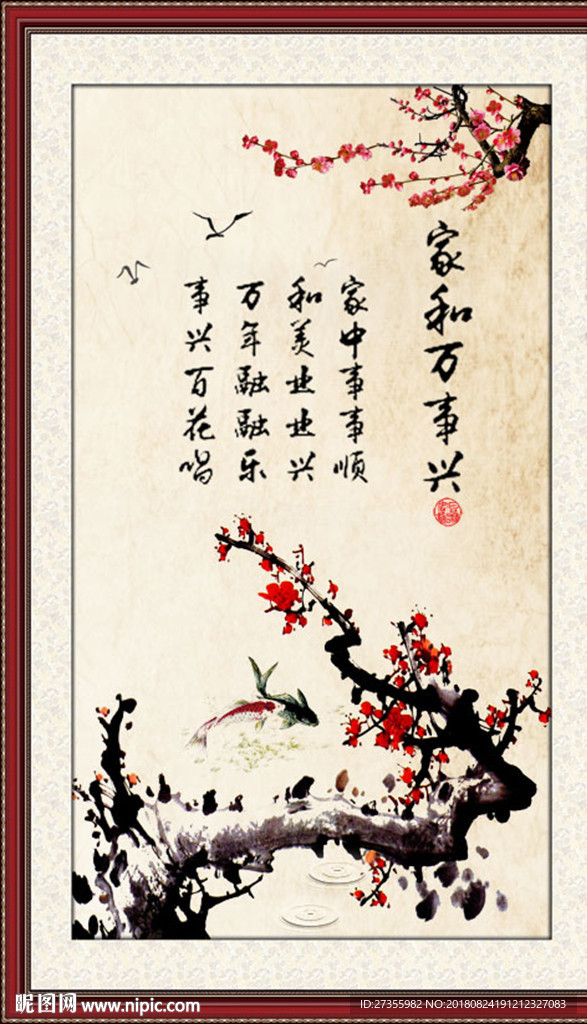 家和万事兴
家中事事顺
和美业业兴
万年融融乐
事兴百花唱
昵图网 www.nipic.com
ID:27355982 NO:20180824191212327083